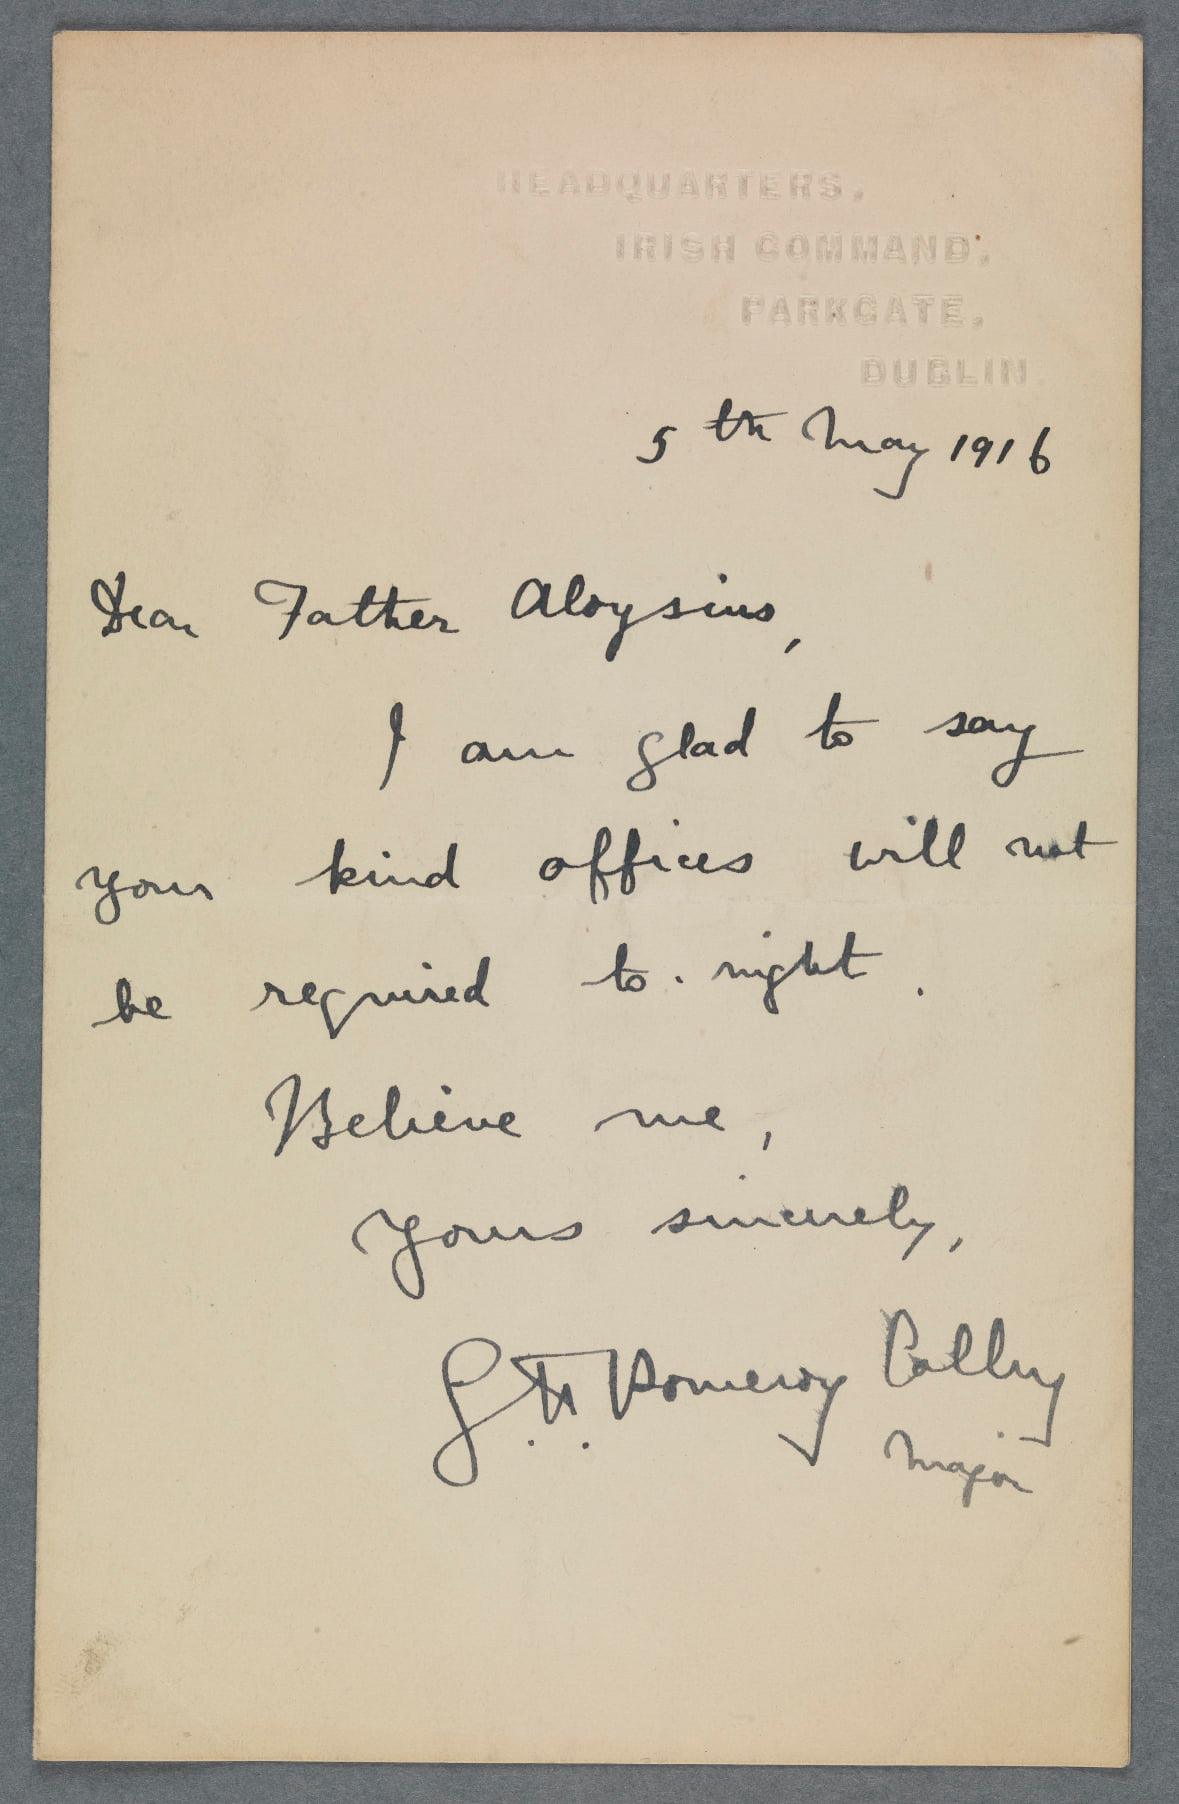 HEADQUARTERS,
IRISH COMMAND,
PARKGATE,
DUBLIN
5th May 1916
Dear Father Aloysius,
I am glad to say
your kind offices will not
be required to.night.
Believe me,
Yours sincerely,
S. H. Pomeroy Colley
Major